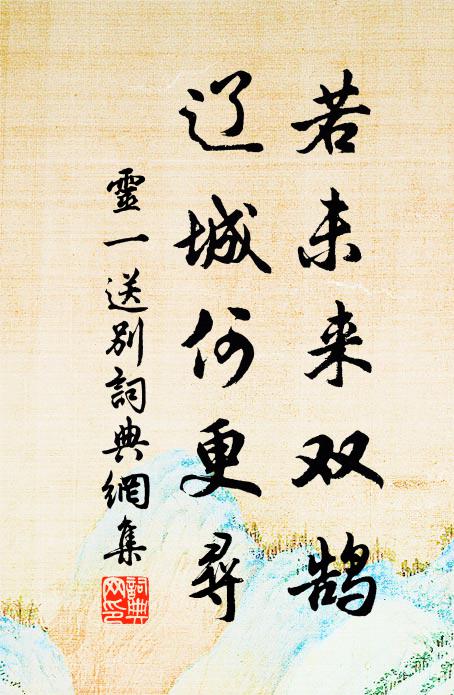 若未来双鹄
辽城何更尋
靈一送别詞典網集
詞典
网印